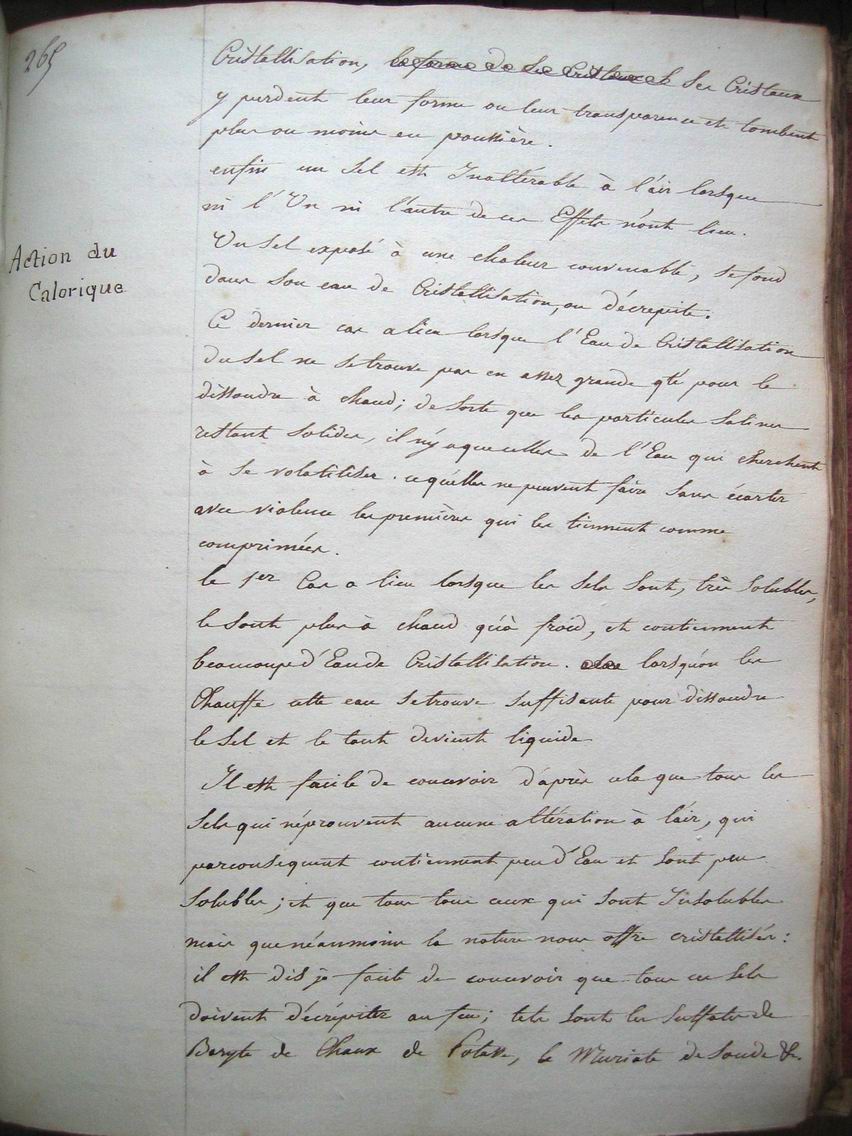 265
Cristallisation, la forme de ses Cristaux et Ses Cristaux
y perdent leur forme ou leur transparence et tombent
plus ou moins en poussière.
enfin un Sel est Inaltérable à l'air lorsque
ni l'Un ni l'autre de ces Effets n'ont lieu.
Action du
Calorique
Un Sel exposé à une chaleur convenable, se fond
dans son eau de Cristallisation, ou décrepite.
Ce dernier cas a lieu lorsque l'Eau de Cristallisation
du Sel ne se trouve pas en assez grande qté pour le
dissoudre à chaud; de sorte que les particules salines
restant solides, il n'y a que celles de l'Eau qui cherchent
à se volatiliser. ce qu'elles ne peuvent faire sans écarter
avec violence les premières qui les tiennent comme
comprimées.
le 1er Cas a lieu lorsque les Sels sont, très solubles,
le sont plus à chaud qu'à froid, et contiennent
beaucoup d'Eau de Cristallisation. lorsqu'on les
Chauffe cette eau se trouve suffisante pour dissoudre
le Sel et le tout devient liquide
Il est facile de concevoir d'après cela que tous les
Sels qui n'éprouvent aucune altération à l'air, qui
par conséquent contiennent peu d'Eau et sont peu
solubles; et que tous tous ceux qui sont Insolubles
mais que néanmoins la nature nous offre cristallisés:
il est dis je facile de concevoir que tous ces Sels
doivent décrépiter au feu; tels sont les Sulfates de
Baryte de Chaux de Potasse, le Muriate de Soude &c.